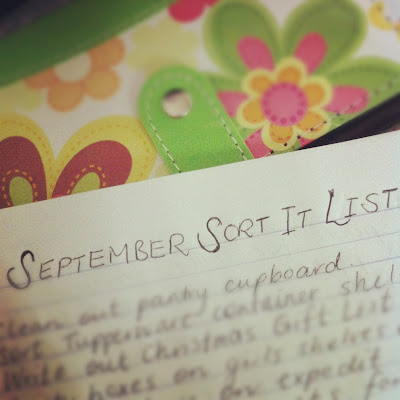 SEPTEMBER SORT IT LIST
Clean out pantry cupboard.
Sort Tupperware container shel
Write out Christmas Gift List
boxes on girls shelves
on expedit